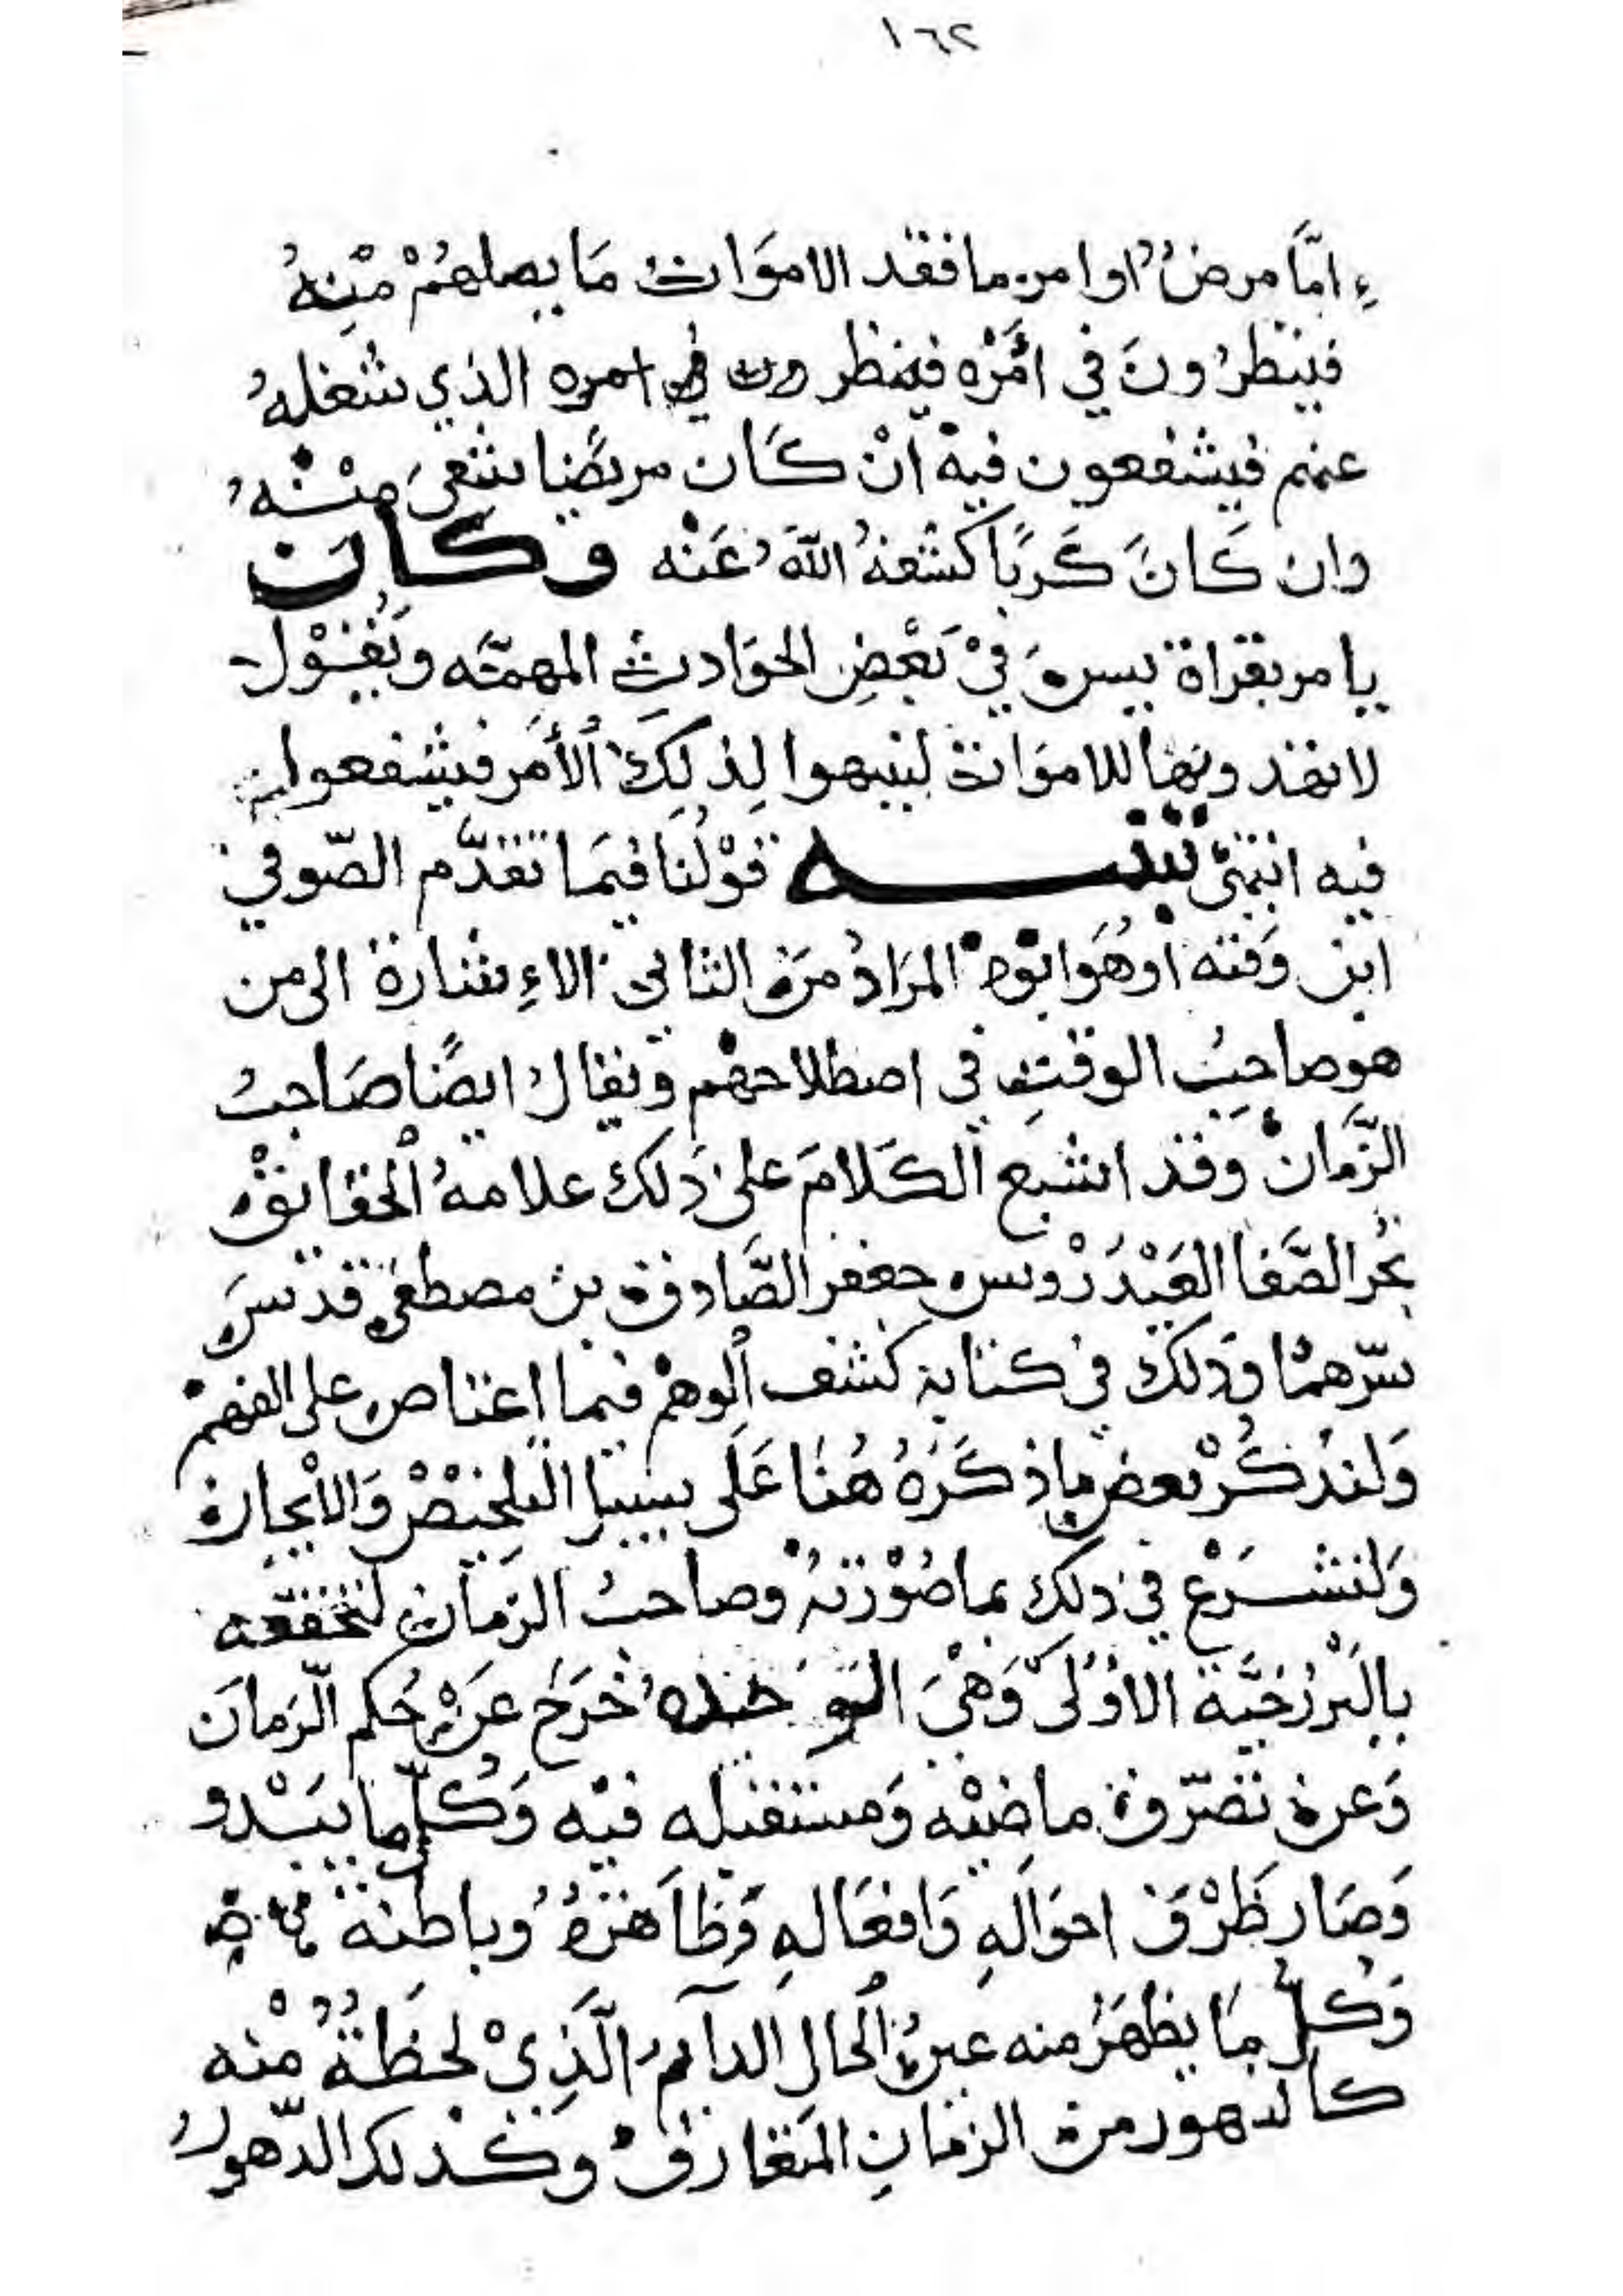 ١٦٢
إمَّا مرضٌ اوا من ما فقد الاموَات مَا يصلهُمْ مْنِهُ
فينظرُونَ في امْرْه فينظرون في امره الذي شغلهُ
عنهم فيشفعون فيهْ انْ كَان مريضًا شفىَ مِنْهُ
وان كَانَ كَربًا كشفهُ اللّهَُ عَنْه وكان
يامر بقراة يسن فيْ بَعْضِ الحوَادث المهمّه ويَقُوْل
لا تهدونها للاموَات لينبهوا لِذلِكَ الأمَر فيشفعوا
فيه انتهىْ تنبيه قوْلُنَا فيمَا تقدَّم الصّوفي
ابن وَقته اوهُوَ ابوْه المرَادُ مَن الثاني الاءِشارة الى من
هو صاحبُ الوقتِ في اصطلاحهْم ويقال ايضًا صَاحبُ
الزَّمانْ وقد اشبع الكَلامَ على ذَلك علامهُ الحقايقْ
بحُر الصَّفا العَيْدَرْوس جعفر الصَّادق بن مصطفى قدسَ
سّرهمْا وذلك في كتابه كشف الوهمْ فيما اعتاص على الفهمْ
وَلنذكُرْ بعض ماذكَرَهُ هُنَا عَلَى سبيل التلخيْصْ وَالاْيجاز
وَلنشرَعْ في ذلك بما صُوْرَتهُ وصاحبُ الزمَان لتحققه
بالبَرْزخيَّة الاوُلىْ وَهْيَ خَرَجَ عَنْ حُكم الّزمانَ
وَعن تصّرف ماضيْه وَمستقبله فيْه وَكُلّ ما يبْدو
وَصَار ظَرْفَ احوَالَهِ وَافعَالهِ وَظاَهرهُ وباطنه
وَكلُّ مَا يظهَرُ منه عينُ الحالِ الدآيم الَّذِيْ لحظَةُ مْنه
كالدهور من الزمانِ المتعارفْ وكذلك الدّهورُ